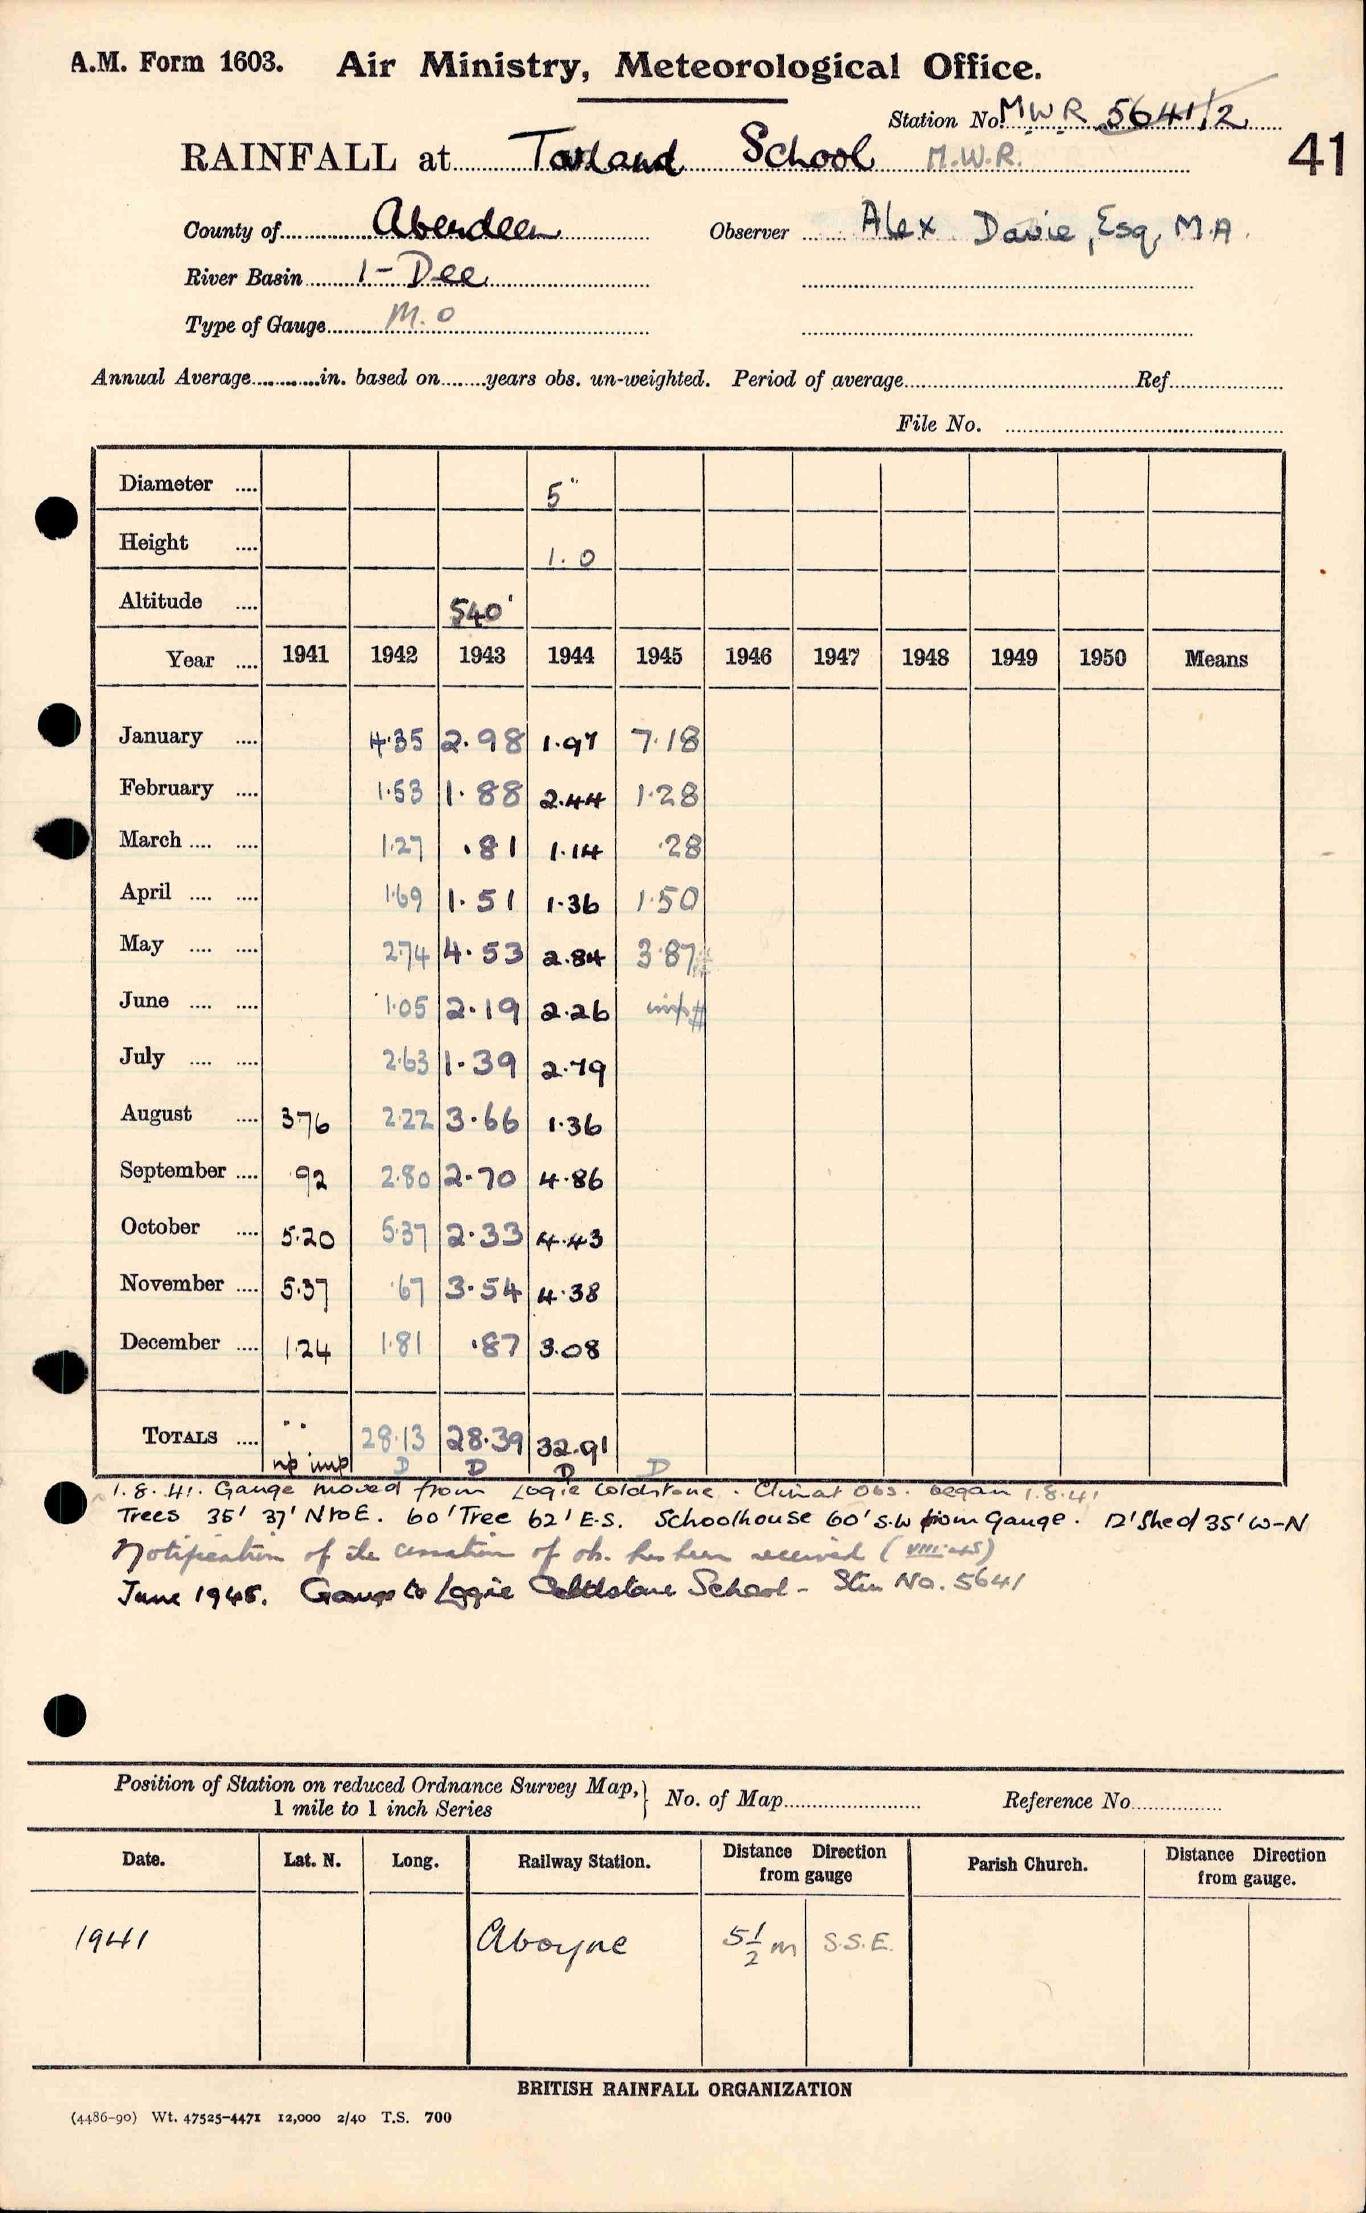 A.M. Form 1603. Air Ministry, Meteorological Office.
Station No. MWR 5641/2
RAINFALL at Tarland School M.W.R. 41
County of Aberdeen Observer Alex Davie, Esq, M.A.
River Basin 1 - Dee
Type of Gauge M.O
Annual Average in. based on years obs. un-weighted. Period of average Ref
File No.
Diameter 5"
Height 1.0
Altitude 540'
Year 1941 1942 1943 1944 1945 1946 1947 1948 1949 1950 Means
January 4.35 2.98 1.97 7.18
February 1.53 1.88 2.44 1.28
March 1.27 .81 1.14 .28
April 1.69 1.51 1.36 1.50
May 2.74 4.53 2.84 3.87
June 1.05 2.19 2.26 imp #
July 2.63 1.39 2.79
August 3.76 2.22 3.66 1.36
September .92 2.80 2.70 4.86
October 5.20 5.37 2.33 4.43
November 5.37 .67 3.54 4.38
December 1.24 1.81 .87 3.08
TOTALS .. 28.13 28.39 32.91
np imp D D D D
1.8.41. Gauge moved from Logie Coldstone. Climat Obs. began 1.8.41
Trees 35' 37' N to E. 60' Tree 62' E-S. Schoolhouse 60' S.W from gauge. 12' Shed 35' W-N
Notification of the cessation of ob. has been received (VIII.45)
June 1945. Gauge to Logie Coldstone School - Stn No. 5641
Position of Station on reduced Ordnance Survey Map,
1 mile to 1 inch Series } No. of Map Reference No.
Date. Lat. N. Long. Railway Station. Distance Direction from gauge Parish Church. Distance Direction from gauge.
1941 Aboyne 5 1/2 m S.S.E.
BRITISH RAINFALL ORGANIZATION
(4486-90) Wt. 47525-4471 12,000 2/40 T.S. 700